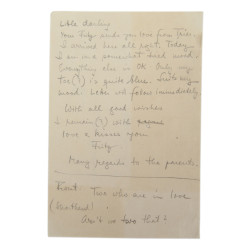 Little darling
Your Fritz sends you love from Paris.
I arrived here all right. Today
I am in a somewhat tired mood.
Everything else is OK. Only my
toe(?) is quite blue. Suits my
mood. Letter will follow immediately
With all good wishes
I remain(?) with
love & kisses your
Fritz
Many regards to the parents
Front: Two who are in love
Aren't we two that?